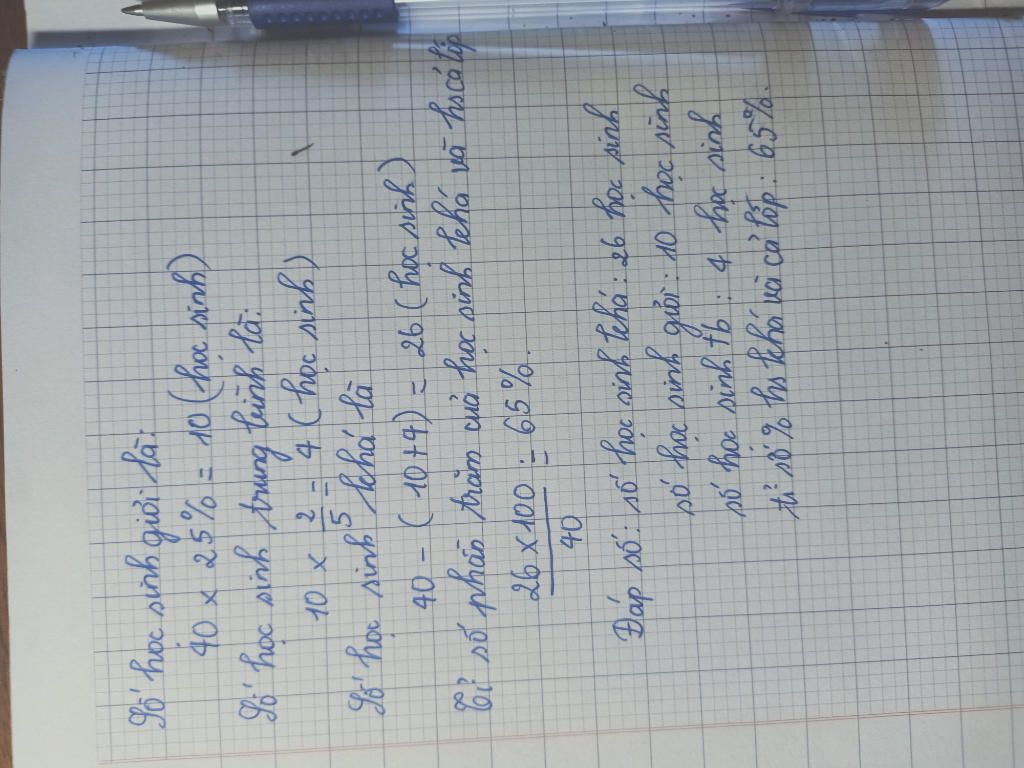 Số học sinh giỏi là:
40 x 25% = 10 (học sinh)
Số học sinh trung bình là:
10 x 2/5 = 4 (học sinh)
Số học sinh khá là
40 - (10+4) = 26 (học sinh)
Tỉ số phần trăm của học sinh khá và hs cả lớp
26 x 100 / 40 = 65%.
Đáp số: số học sinh khá: 26 học sinh
số học sinh giỏi: 10 học sinh
số học sinh tb: 4 học sinh
tỉ số % hs khá và cả lớp: 65%.